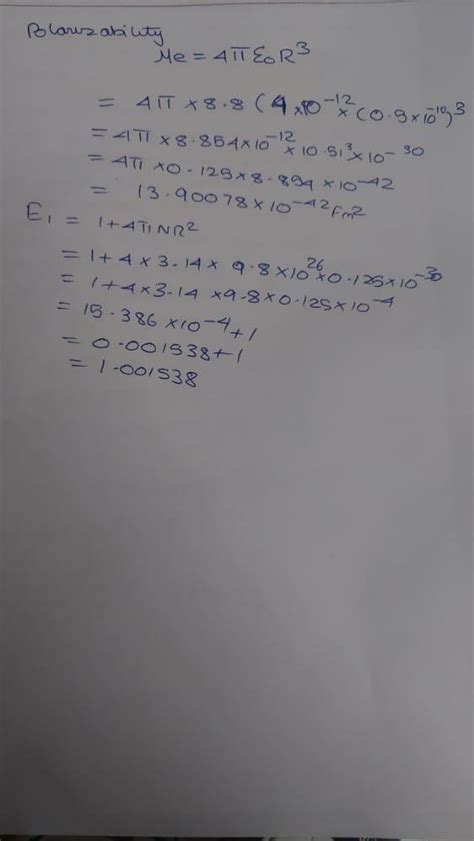 Polarizability
Me = 4πε₀R³
= 4π × 8.8 ( 4 × 10⁻¹² × (0.5 × 10⁻¹⁰)³
= 4π × 8.854 × 10⁻¹² × 10.51³ × 10⁻³⁰
= 4π × 0.125 × 8.854 × 10⁻⁴²
= 13.90078 × 10⁻⁴² Fm²
E₁ = 1 + 4πNR²
= 1 + 4 × 3.14 × 9.8 × 10²⁶ × 0.125 × 10⁻³⁰
= 1 + 4 × 3.14 × 9.8 × 0.125 × 10⁻⁴
= 15.386 × 10⁻⁴ + 1
= 0.001538 + 1
= 1.001538